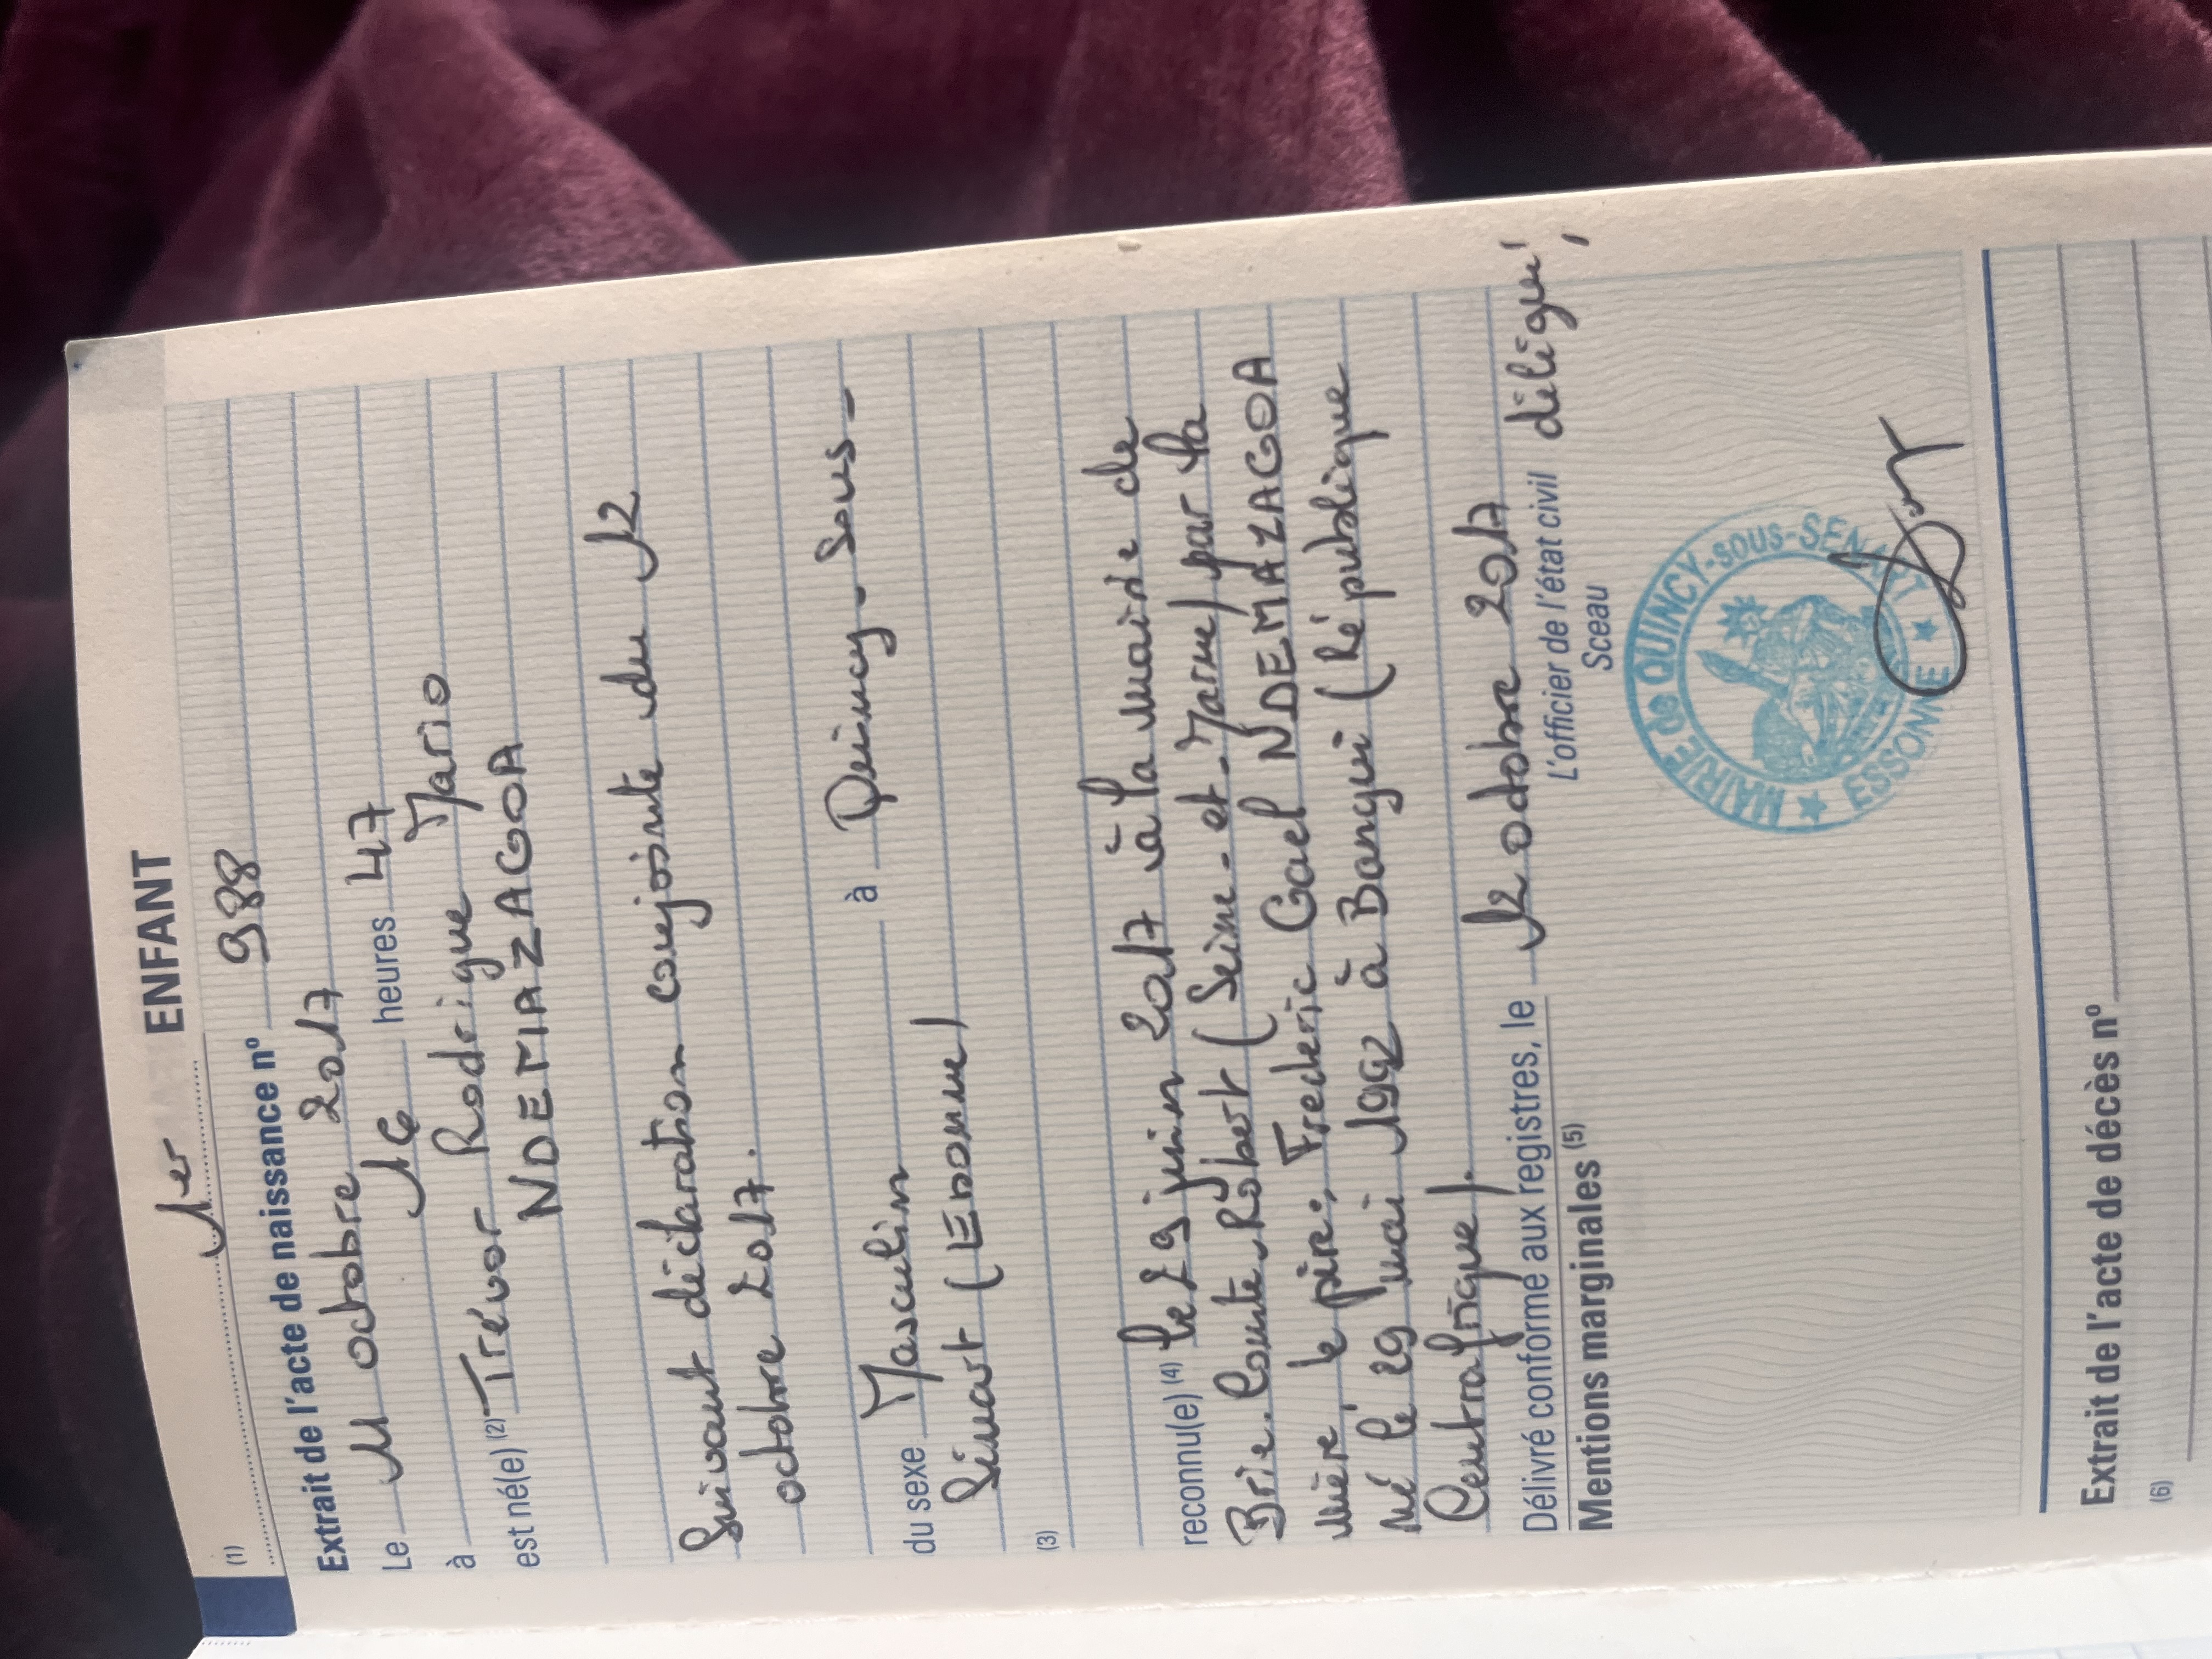 (1) 1er ENFANT
Extrait de l'acte de naissance nº 988
Le 11 octobre 2017
à 16 heures 47
est né(e) (2) Trévor Rodrigue Mario
NDEMAZAGOA
Suivant déclaration conjointe du 12
octobre 2017.
du sexe Masculin à Quincy-sous-
Sénart (Essonne)
(3)
reconnu(e) (4) le 29 juin 2017 à la mairie de
Brie-Comte-Robert (Seine-et-Marne) par la
mère, le père: Frederic Gael NDEMAZAGOA
né le 29 mai 1992 à Bangui (République
Centrafrique).
Délivré conforme aux registres, le 12 octobre 2017
Mentions marginales (5)
L'officier de l'état civil délégué,
Sceau
MAIRIE de QUINCY-SOUS-SENART
★ ESSONNE ★
Extrait de l'acte de décès nº
(6)